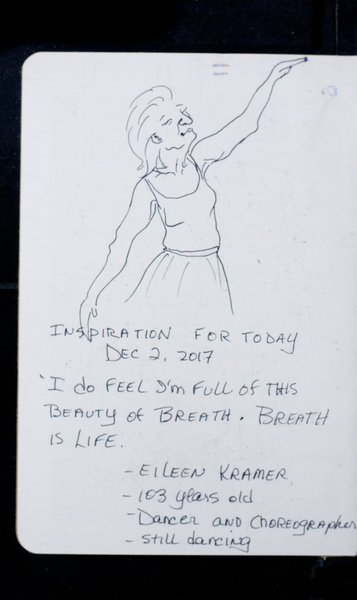 INSPIRATION FOR TODAY
DEC 2, 2017
'I do FEEL I'm FULL OF THIS
BEAUTY of BREATH. BREATH
IS LIFE.
- EILEEN KRAMER
- 103 years old
- Dancer AND CHOREOGRAPHER
- still dancing